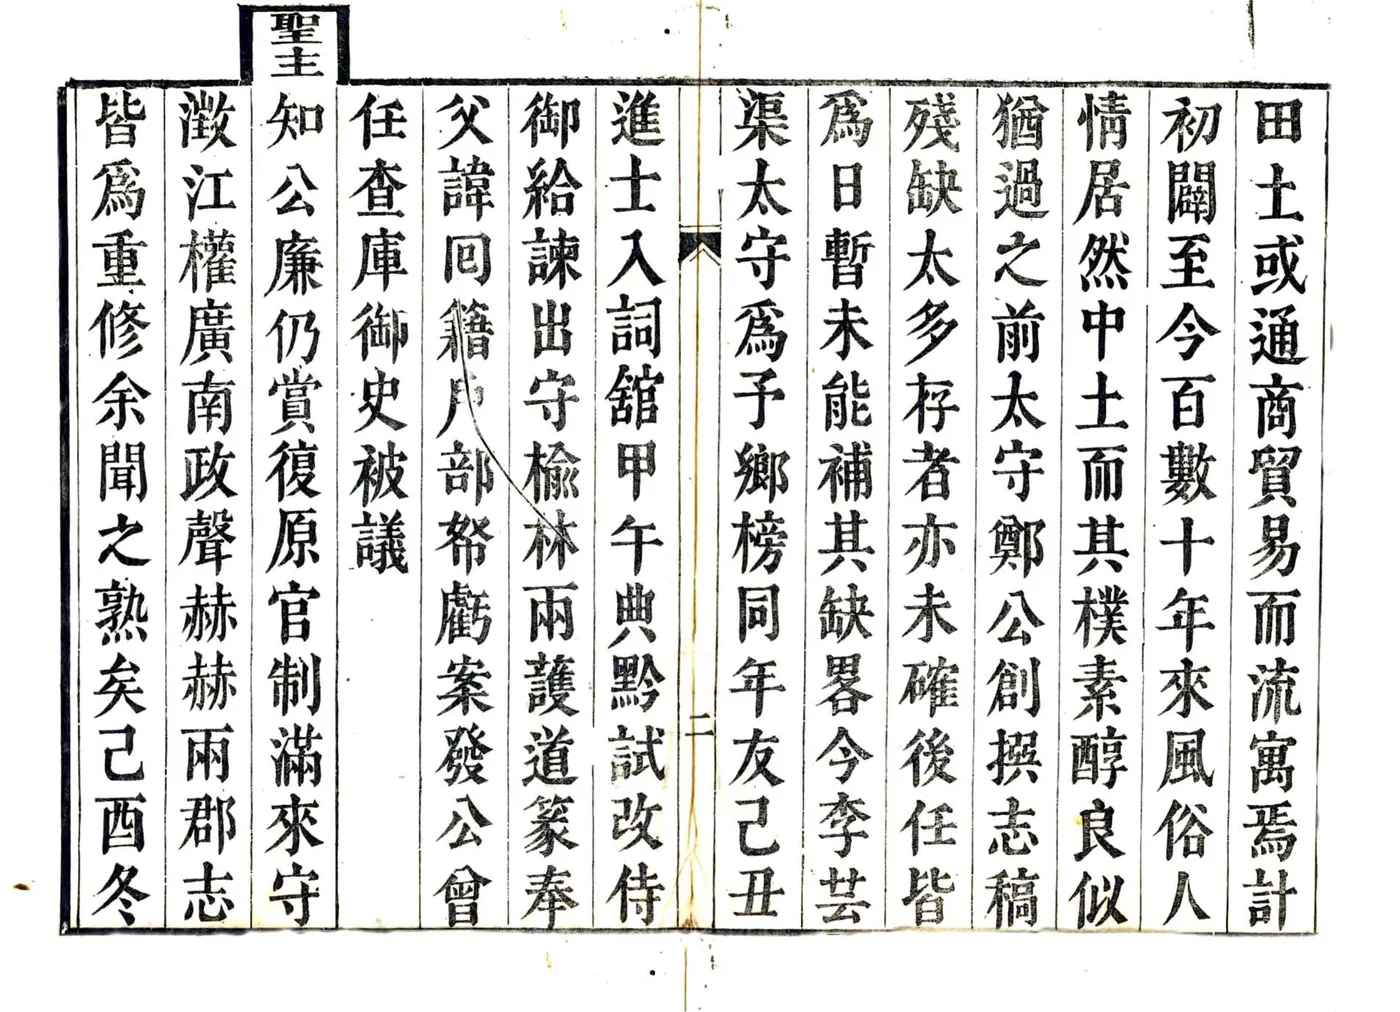 田土或通商貿易而流寓焉計
初闢至今百數十年來風俗人
情居然中土而其樸素醇良似
猶過之前太守鄭公創撰志稿
殘缺太多存者亦未確後任皆
爲日暫未能補其缺畧今李芸
渠太守爲予鄉榜同年友己丑
二
進士入詞舘甲午典黔試改侍
御給諫出守榆林兩護道篆奉
父諱回籍戶部帑虧案發公曾
任查庫御史被議
聖主
知公廉仍賞復原官制滿來守
澂江權廣南政聲赫赫兩郡志
皆爲重修余聞之熟矣己酉冬